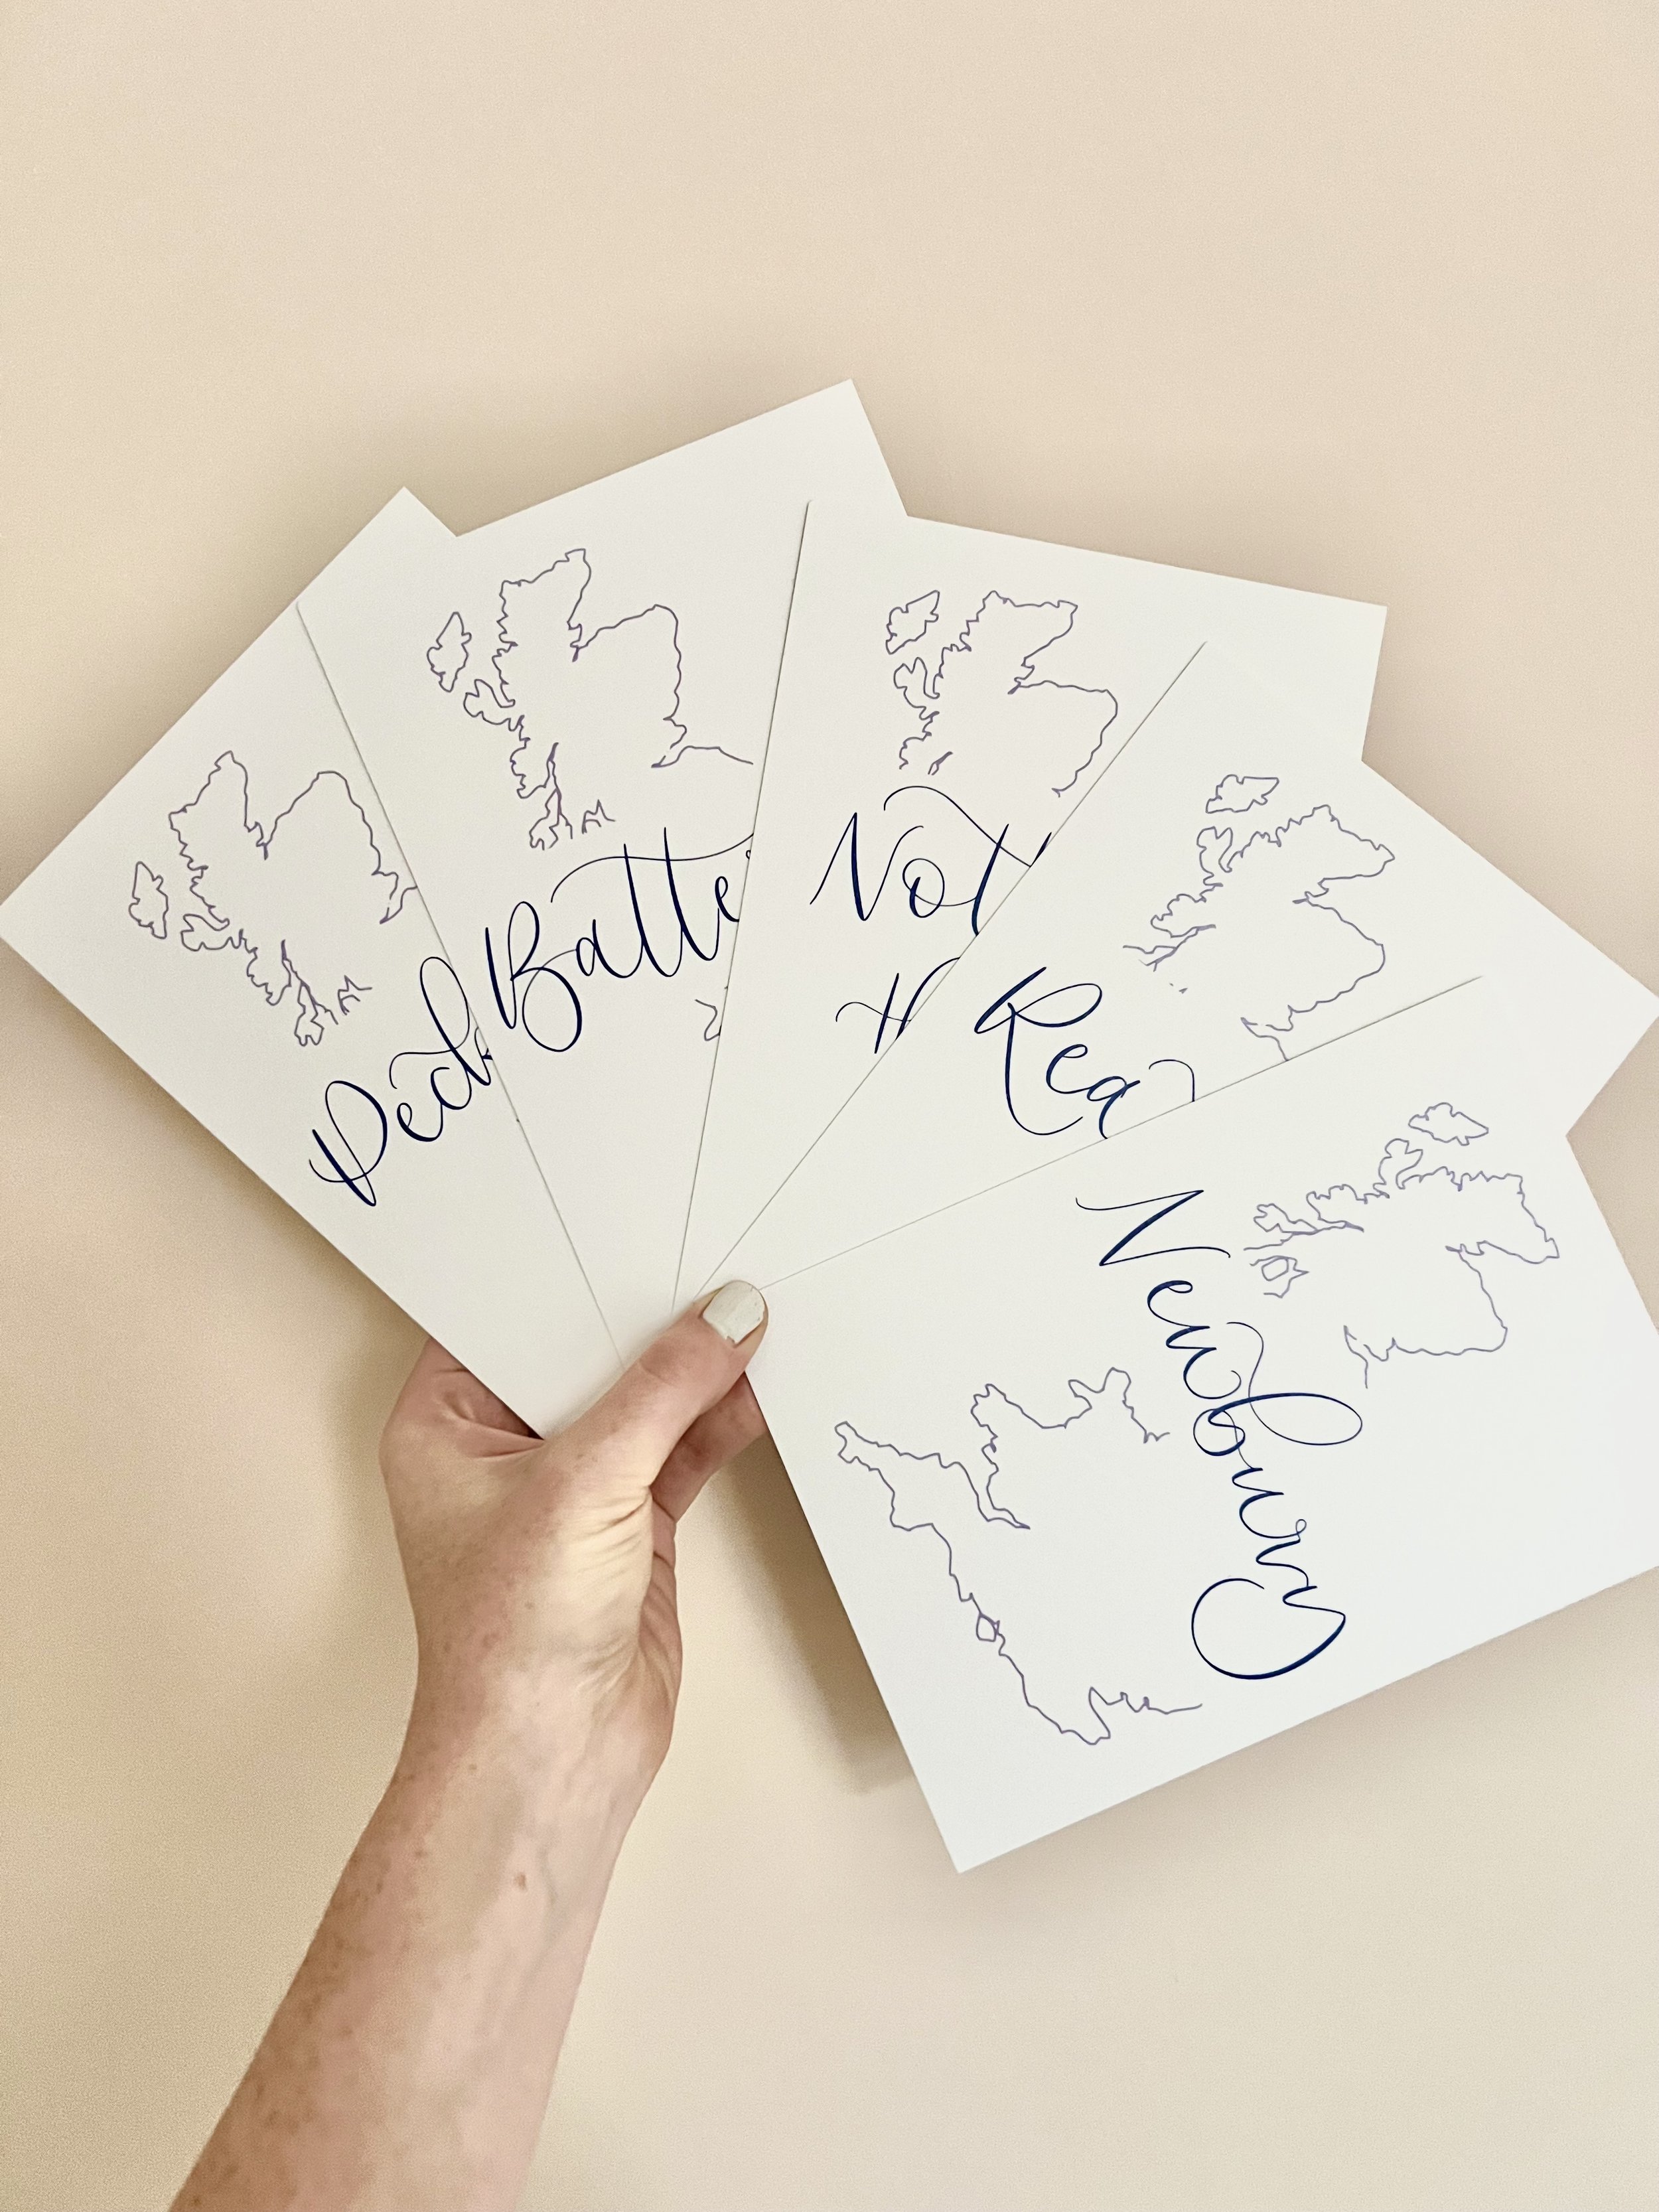 Peck
Batte
Not
H
Rea
Newbury